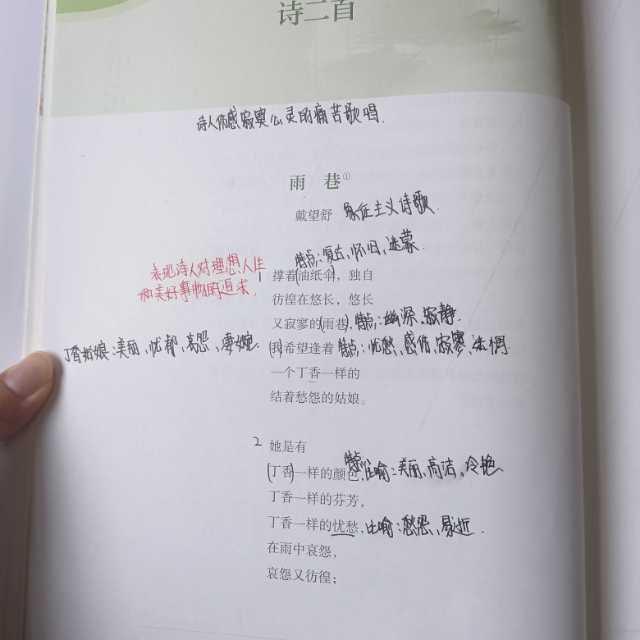 诗二首
诗人伤感寂寞心灵的痛苦歌唱.
雨 巷①
戴望舒 象征主义诗歌
特点:复古、怀旧、迷蒙.
表现诗人对理想、人生
和美好事物的追求.
1 撑着(油纸伞),独自
彷徨在悠长,悠长
又寂寥的(雨巷),特点:幽深、寂静.
丁香姑娘:美丽、忧郁、哀怨、凄婉.
(我)希望逢着 特点:忧愁、感伤、寂寥、
一个丁香一样的
结着愁怨的姑娘。
2 她是有
(丁香)一样的颜色, 比喻:美丽、高洁、冷艳
丁香一样的芬芳,
丁香一样的忧愁,比喻:愁怨、
在雨中哀怨,
哀怨又彷徨;